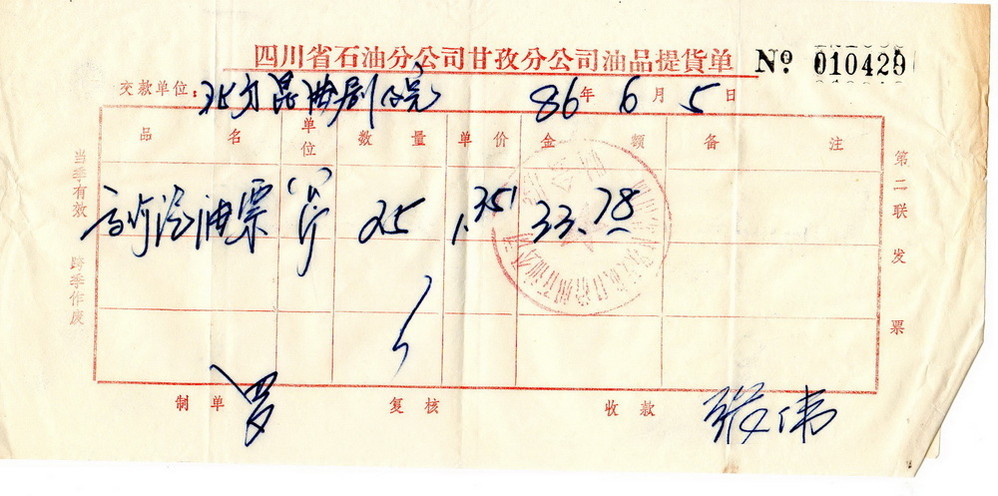 四川省石油分公司甘孜分公司油品提货单 No. 010429
交款单位: 北方昆曲剧院 86年6月5日
品名 单位 数量 单价 金额 备注
高价汽油票 公斤 25 1.351 33.78
当季有效 跨季作废
第二联发票
制单 罗 复核 收款 张伟